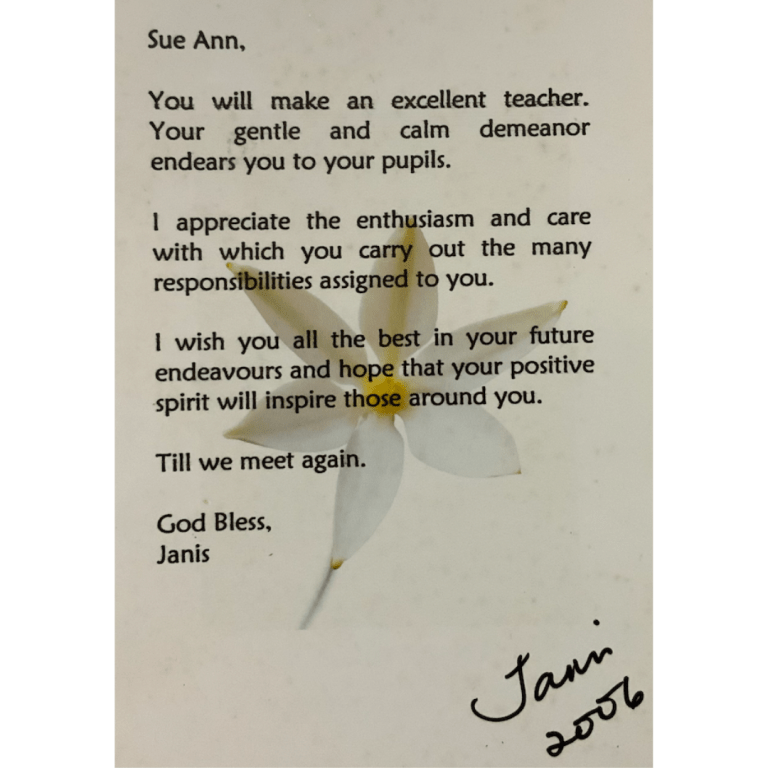 Sue Ann,
You will make an excellent teacher.
Your gentle and calm demeanor
endears you to your pupils.
I appreciate the enthusiasm and care
with which you carry out the many
responsibilities assigned to you.
I wish you all the best in your future
endeavours and hope that your positive
spirit will inspire those around you.
Till we meet again.
God Bless,
Janis
Janis
2006